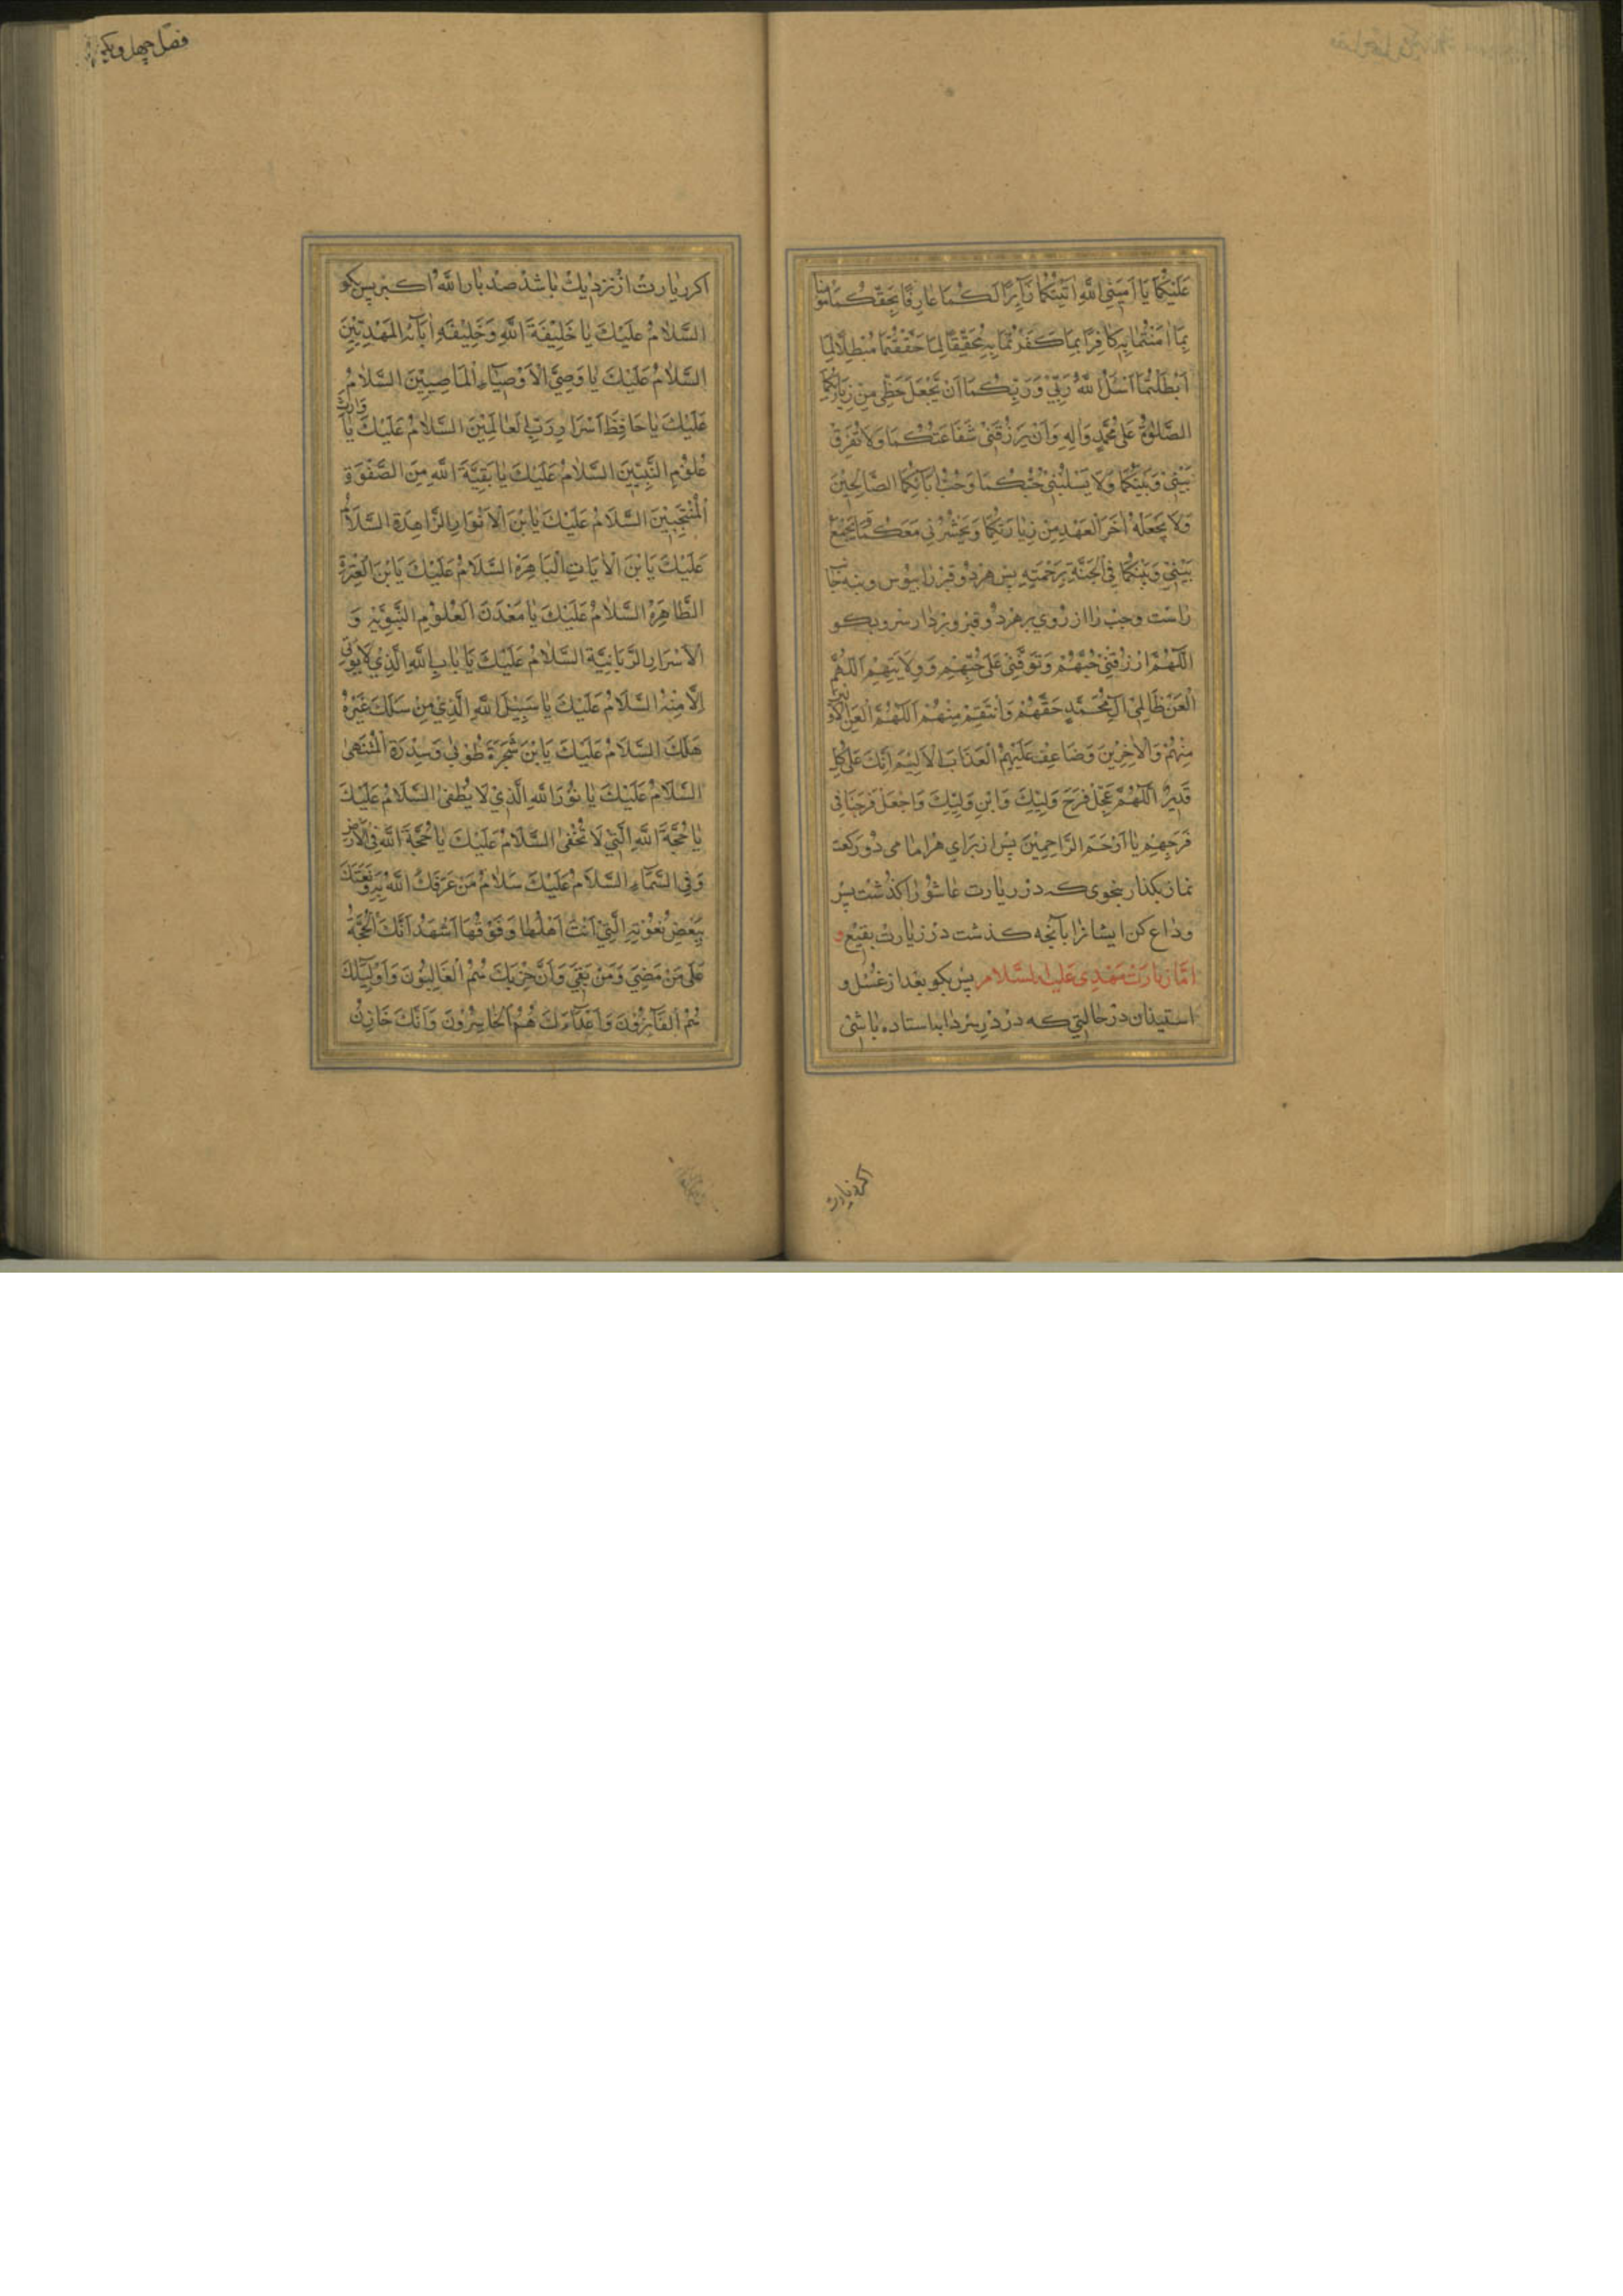 عَلَيْكُمَا يَا اَمِيْنِيَ اللّٰهِ اَتَيْتُكُمَا زَآئِرًا لَكُمَا عَارِفًا بِحَقِّكُمَا مُؤْمِنًا
بِمَا اٰمَنْتُمَا بِهِ كَافِرًا بِمَا كَفَرْتُمَا بِهِ مُحَقِّقًا لِمَا حَقَّقْتُمَا مُبْطِلًا لِمَا
اَبْطَلْتُمَا اَسْئَلُ اللّٰهَ رَبِّيْ وَرَبَّكُمَا اَنْ تَجْعَلَ حَظِّيْ مِنْ زِيَارَتِكُمَا
الصَّلٰوةُ عَلٰى مُحَمَّدٍ وَاٰلِهِ وَاَنْ يَرْزُقَنِيْ شَفَاعَتَكُمَا وَلَا تُفَرِّقَ
بَيْنِيْ وَبَيْنَكُمَا وَلَا يَسْلُبَنِيْ حُبَّكُمَا وَحُبَّ اٰبَائِكُمَا الصَّالِحِيْنَ
وَلَا يَجْعَلَهُ اٰخَرَ الْعَهْدِ مِنْ زِيَارَتِكُمَا وَيَحْشُرَنِيْ مَعَكُمَا وَيَجْمَعَ
بَيْنِيْ وَبَيْنَكُمَا فِي الْجَنَّةِ بِرَحْمَتِهِ پس هر دو قبر را ببوس و بنه جانب
راست و چپ را از روی بر هر دو قبر و بردار سر و بکو
اَللّٰهُمَّ ارْزُقْنِيْ حُبَّهُمْ وَتَوَفَّنِيْ عَلٰى حُبِّهِمْ وَوِلَايَتِهِمْ اَللّٰهُمَّ
الْعَنْ ظَالِمِيْ اٰلِ مُحَمَّدٍ حَقَّهُمْ وَانْتَقِمْ مِنْهُمْ اَللّٰهُمَّ الْعَنِ الْاَوَّلِيْنَ
مِنْهُمْ وَالْاٰخِرِيْنَ وَضَاعِفْ عَلَيْهِمُ الْعَذَابَ الْاَلِيْمَ اِنَّكَ عَلٰى كُلِّ
قَدِيْرٌ اَللّٰهُمَّ عَجِّلْ فَرَجَ وَلِيِّكَ وَابْنِ وَلِيِّكَ وَاجْعَلْ فَرَجَنَا فِيْ
فَرَجِهِمْ يَا اَرْحَمَ الرَّاحِمِيْنَ پس از برای هر امامی دو رکعت
نماز بکذار بنحوی که در زیارت عاشورا کذشت پس
وداع کن ایشانرا بآنچه کذشت در زیارت بقیع و
امّا زیارت مهدی علیه السلام پس بکو بعد از غسل و
استیذان در حالتی که در در سرداب استاده باشی
اکر زیارت
فصل چهل و یکم
اکر زیارت از نزدیك باشد صد بار اَللّٰهُ اَكْبَر پس بکو
اَلسَّلَامُ عَلَيْكَ يَا خَلِيْفَةَ اللّٰهِ وَخَلِيْفَةَ اٰبَآئِهِ الْمَهْدِيِّيْنَ
اَلسَّلَامُ عَلَيْكَ يَا وَصِيَّ الْاَوْصِيَآءِ الْمَاضِيْنَ السَّلَامُ
عَلَيْكَ يَا حَافِظَ اَسْرَارِ رَبِّ الْعَالَمِيْنَ السَّلَامُ عَلَيْكَ يَا وَارِثَ
عُلُوْمِ النَّبِيِّيْنَ السَّلَامُ عَلَيْكَ يَا بَقِيَّةَ اللّٰهِ مِنَ الصَّفْوَةِ
الْمُنْتَجَبِيْنَ السَّلَامُ عَلَيْكَ يَا بْنَ الْاَنْوَارِ الزَّاهِرَةِ السَّلَامُ
عَلَيْكَ يَا بْنَ الْاٰيَاتِ الْبَاهِرَةِ السَّلَامُ عَلَيْكَ يَا بْنَ الْعِتْرَةِ
الطَّاهِرَةِ السَّلَامُ عَلَيْكَ يَا مَعْدَنَ الْعُلُوْمِ النَّبَوِيَّةِ وَ
الْاَسْرَارِ الرَّبَّانِيَّةِ السَّلَامُ عَلَيْكَ يَا بَابَ اللّٰهِ الَّذِيْ لَا يُؤْتٰى
اِلَّا مِنْهُ السَّلَامُ عَلَيْكَ يَا سَبِيْلَ اللّٰهِ الَّذِيْ مَنْ سَلَكَ غَيْرَهُ
هَلَكَ السَّلَامُ عَلَيْكَ يَا بْنَ شَجَرَةِ طُوْبٰى وَسِدْرَةِ الْمُنْتَهٰى
السَّلَامُ عَلَيْكَ يَا نُوْرَ اللّٰهِ الَّذِيْ لَا يُطْفٰى السَّلَامُ عَلَيْكَ
يَا حُجَّةَ اللّٰهِ الَّتِيْ لَا تُخْفٰى السَّلَامُ عَلَيْكَ يَا حُجَّةَ اللّٰهِ فِي الْاَرْضِ
وَفِي السَّمَآءِ السَّلَامُ عَلَيْكَ سَلَامُ مَنْ عَرَفَكَ اللّٰهُ بِهِ وَنَعَتَكَ
بِبَعْضِ نُعُوْتِهِ الَّتِيْ اَنْتَ اَهْلُهَا وَفَوْقَهَا اَشْهَدُ اَنَّكَ الْحُجَّةُ
عَلٰى مَنْ مَضٰى وَمَنْ بَقِيَ وَاَنَّ حِزْبَكَ هُمُ الْغَالِبُوْنَ وَاَوْلِيَآءَكَ
هُمُ الْفَآئِزُوْنَ وَاَعْدَآءَكَ هُمُ الْخَاسِرُوْنَ وَاَنَّكَ خَازِنُ